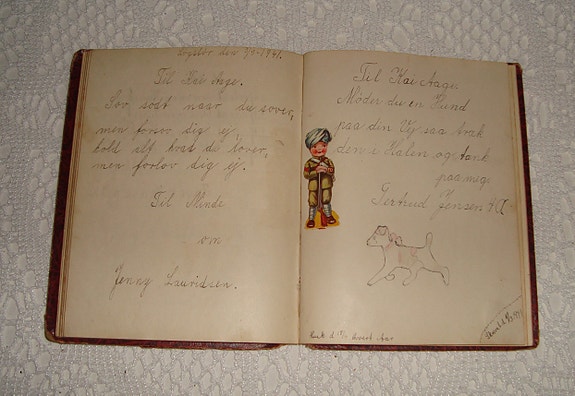 Til Kai Aage.
Sov sødt naar du sover,
men forsov dig ej,
hold alt hvad du lover,
men forlov dig ej.
Til Minde
om
Jenny Lauridsen.
Til Kai Aage.
Møder du en Hund
paa din Vej saa træk
den i Halen og tænk
paa mig.
Jensen